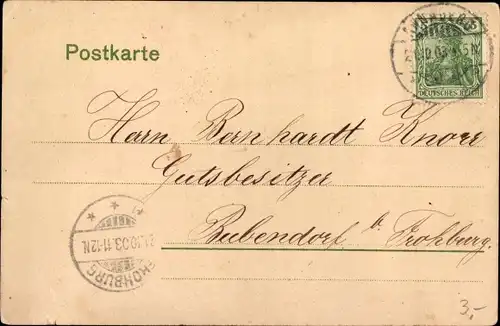 Postkarte
DEUTSCHES REICH
Herrn Bernhardt Knorr
Gutsbesitzer
Bubendorf b. Frohburg.
FROHBURG
10.03.11-12N.
3,-